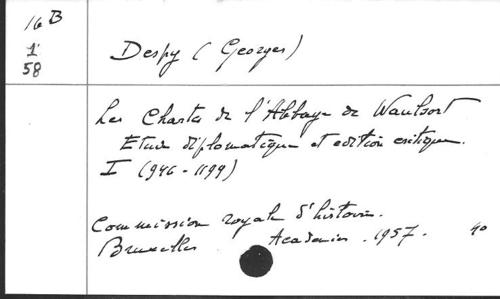 16 B
1'
58
Despy (Georges)
Les Chartes de l'Abbaye de Waulsort
Etude diplomatique et edition critique.
I (946 - 1199)
Commission royale d'histoire.
Bruxelles Academies. 1957. 4o